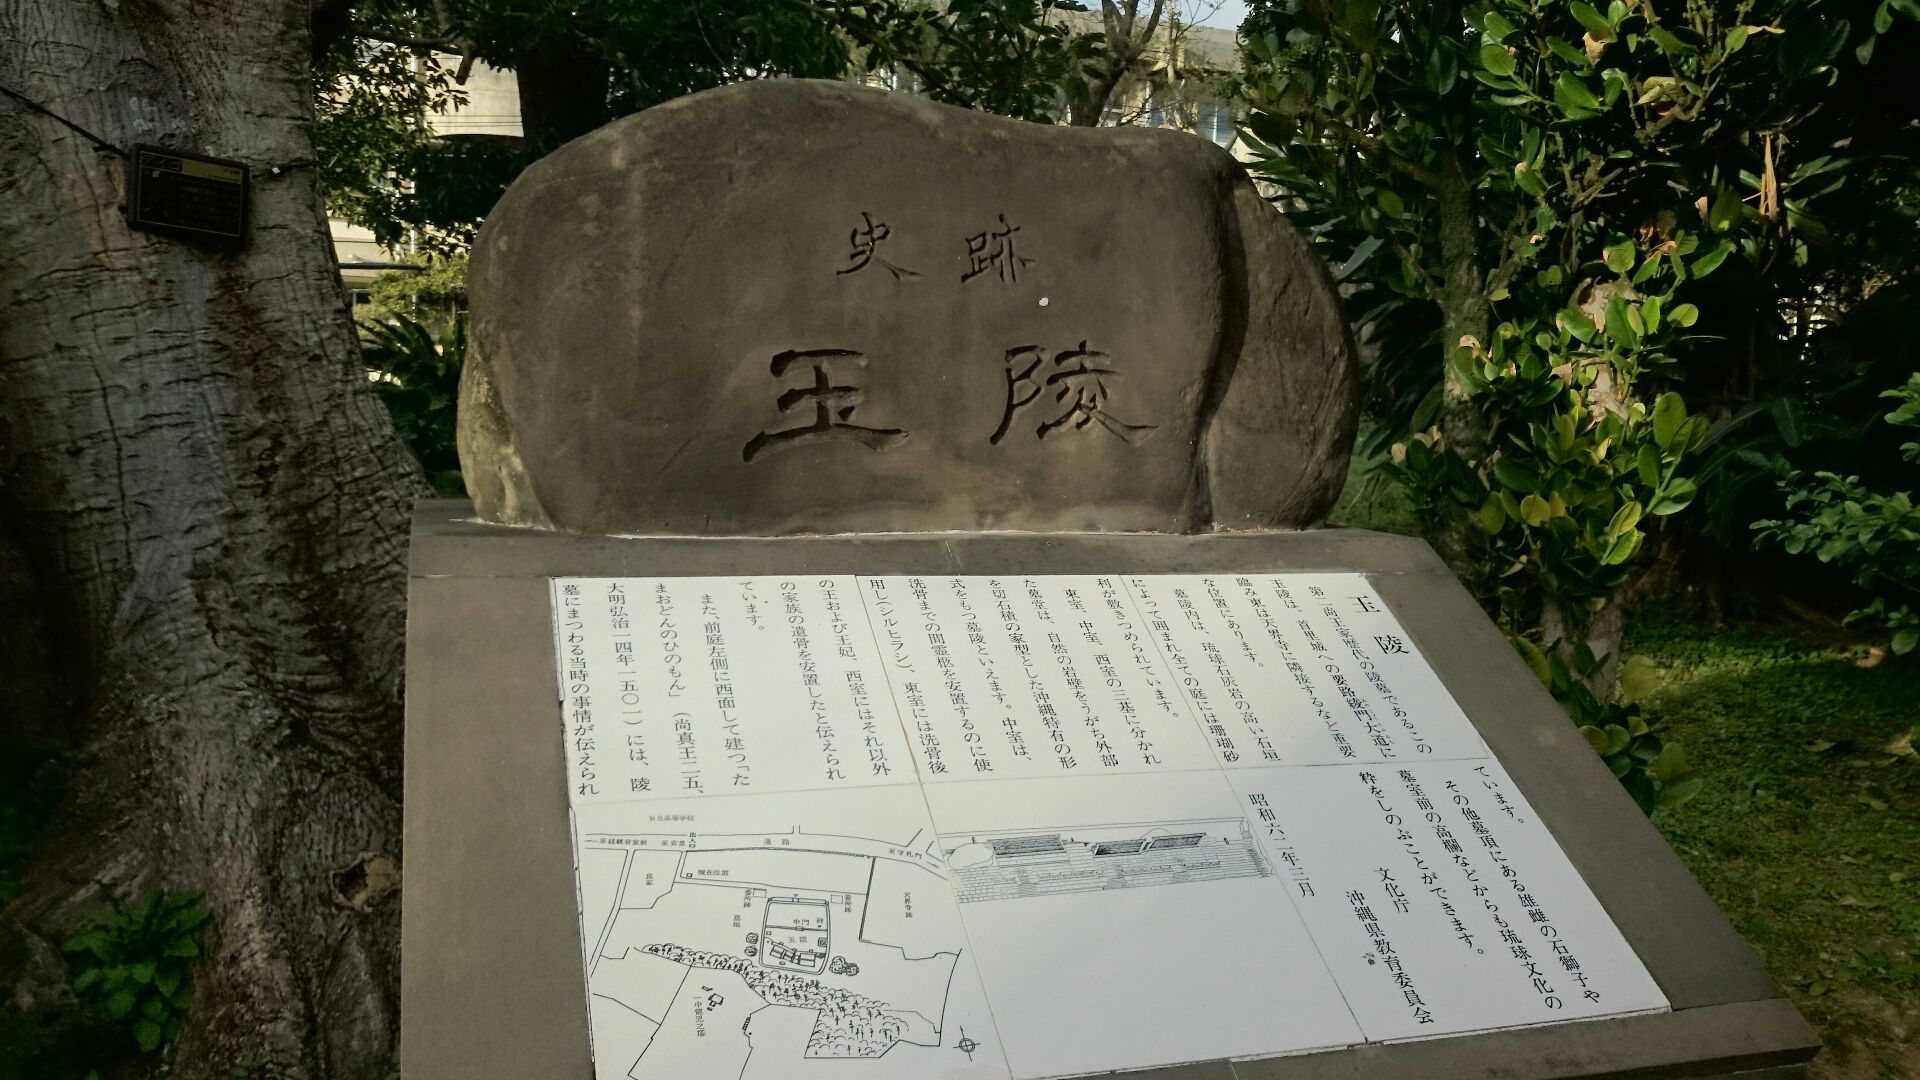 史跡
玉陵
玉陵
第二尚王家歴代の陵墓であるこの
玉陵は、首里城への要路綾門大道に
臨み東は天界寺に隣接するなど重要
な位置にあります。
墓陵内は、琉球石灰岩の高い石垣
によって囲まれ全ての庭には珊瑚砂
利が敷きつめられています。
東室、中室、西室の三基に分かれ
た墓堂は、自然の岩壁をうがち外部
を切石積の家型とした沖縄特有の形
式をもつ墓陵といえます。中室は、
洗骨までの間霊柩を安置するのに使
用し(シルヒラシ)、東室には洗骨後
の王および王妃、西室にはそれ以外
の家族の遺骨を安置したと伝えられ
ています。
また、前庭左側に西面して建つ「た
まおどんのひのもん」(尚真王二五、
大明弘治一四年一五〇一)には、陵
墓にまつわる当時の事情が伝えられ
ています。
その他墓頂にある雄雌の石獅子や
墓室前の高欄などからも琉球文化の
粋をしのぶことができます。
文化庁
沖縄県教育委員会
昭和六二年三月
首里高等学校
出入口
至安里
道路
至守礼門
現在位置
民家
番所跡
番所跡
天界寺跡
墓地
中門
碑
玉陵
一中健児之塔